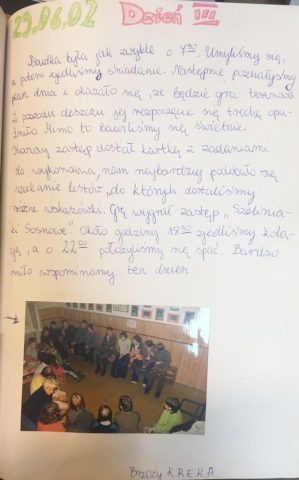 29.06.02 Dzień III
Pobudka była jak zwykle o 7³⁰. Umyliśmy się,
a potem zjedliśmy śniadanie. Następnie poznaliśmy
plan dnia i okazało się, że będzie gra terenowa.
Z powodu deszczu jej rozpoczęcie się trochę opu-
źniło. Mimo to bawiliśmy się świetnie.
Każdy zastęp dostał kartkę z zadaniami
do wykonania, nam najbardziej podobało się
szukanie listów, do których dostaliśmy
różne wskazówki. Grę wygrał zastęp „
Sosnowe". Około godziny 19³⁰ zjedliśmy kola-
cję, a o 22⁰⁰ położyliśmy się spać. Bardzo
miło wspominamy ten dzień.
K.R.E.K.A.